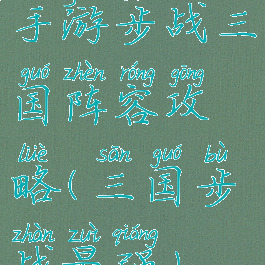 手游步战三
guó zhèn róng gōng
国阵容攻
luè sān guó bù
略(三国步
zhàn zuì qiáng
战最强)